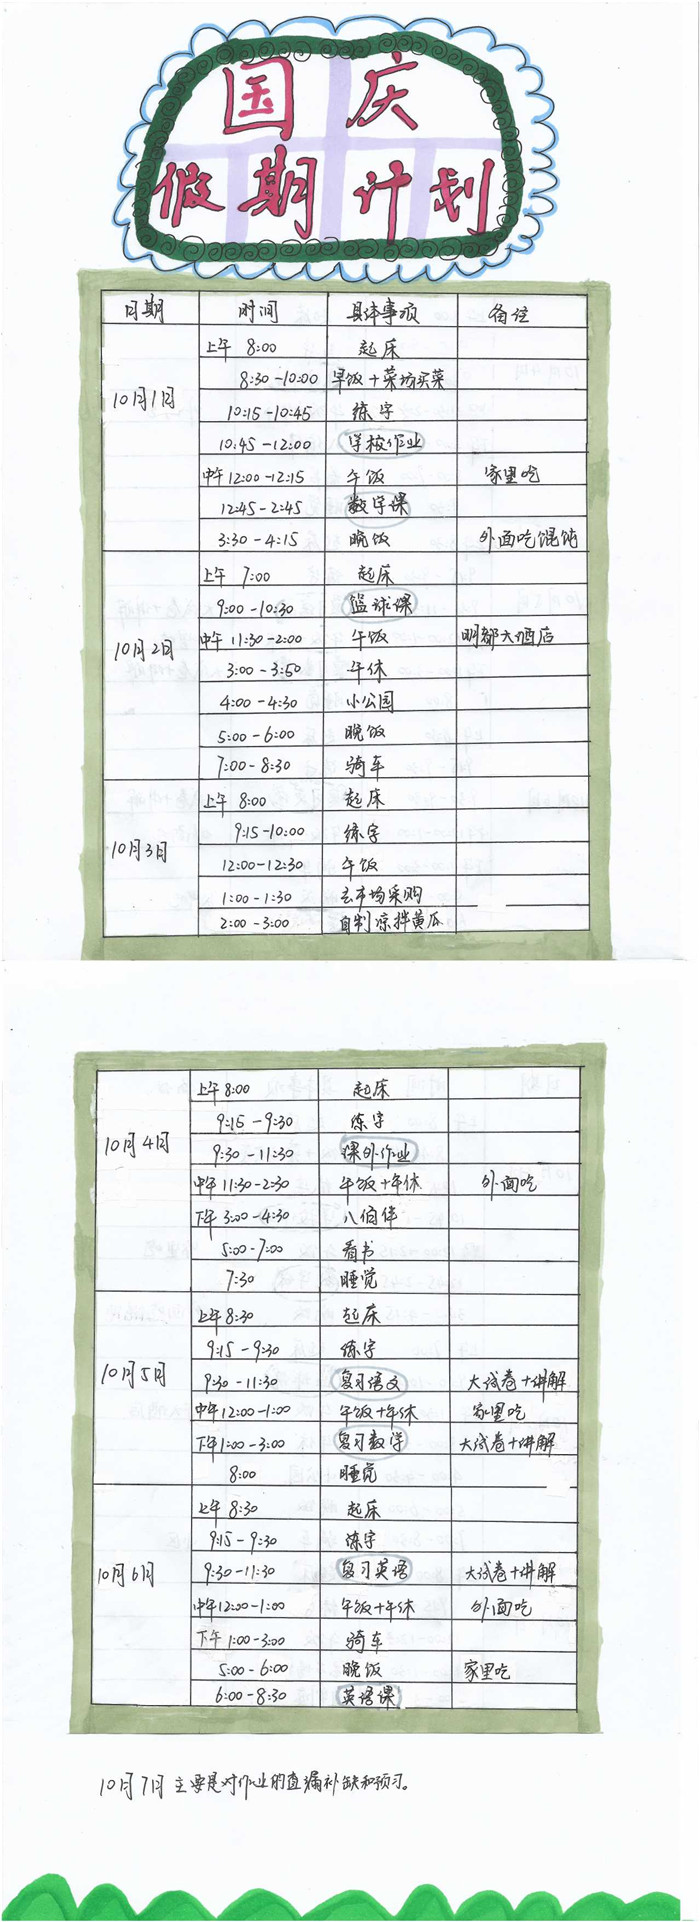 国庆
假期计划
日期 时间 具体事项 备注
10月1日
上午 8:00 起床
8:30-10:00 早饭+菜场买菜
10:15-10:45 练字
10:45-12:00 学校作业
中午12:00-12:15 午饭 家里吃
12:45-2:45 数学课
3:30-4:15 晚饭 外面吃馄饨
10月2日
上午 7:00 起床
9:00-10:30 篮球课
中午 11:30-2:00 午饭 明都大酒店
3:00-3:50 午休
4:00-4:30 小公园
5:00-6:00 晚饭
7:00-8:30 骑车
10月3日
上午 8:00 起床
9:15-10:00 练字
12:00-12:30 午饭
1:00-1:30 去市场采购
2:00-3:00 自制凉拌黄瓜
10月4日
上午8:00 起床
9:15-9:30 练字
9:30-11:30 课外作业
中午11:30-2:30 午饭+午休 外面吃
下午3:00-4:30 八佰伴
5:00-7:00 看书
7:30 睡觉
10月5日
上午8:30 起床
9:15-9:30 练字
9:30-11:30 复习语文 大试卷+讲解
中午12:00-1:00 午饭+午休 家里吃
下午1:00-3:00 复习数学 大试卷+讲解
8:00 睡觉
10月6日
上午 8:30 起床
9:15-9:30 练字
9:30-11:30 复习英语 大试卷+讲解
中午12:00-1:00 午饭+午休 外面吃
下午 1:00-3:00 骑车
5:00-6:00 晚饭 家里吃
6:00-8:30 英语课
10月7日主要是对作业的查漏补缺和预习。